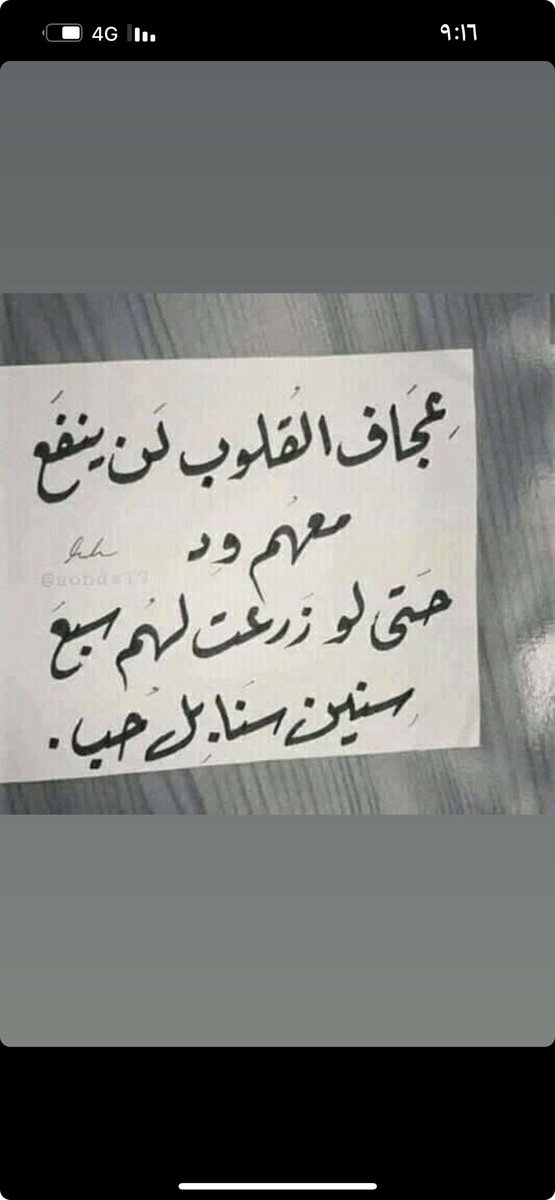 4G ٩:١٦
عِجَاف القُلوب لَن ينفَع
معهُم وِد
حَتى لو زَرعت لهُم سبعَ
سنِين سنَابِل حُب .